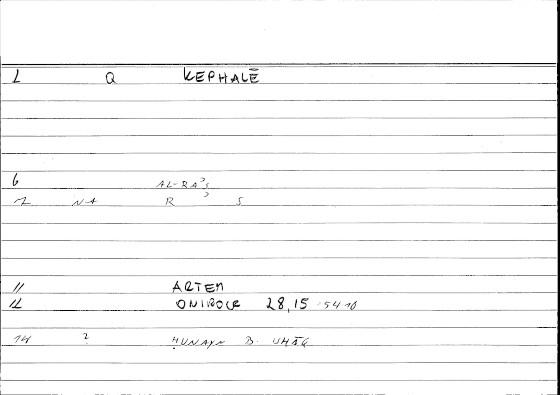 1 Q KEPHALĒ
6 AL-RAʾS
7 NA R ʾ S
11 ARTEM
12 ONIROCR 28,15 54 10
14 ? ḤUNAYN B.